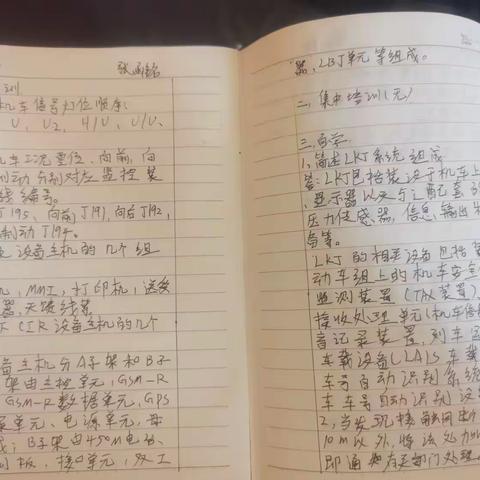 张函铭
训
机车信号灯位顺序:
U、U2、U/U、
车工况零位、向前、向
制动分别对应监控装
线编号。
T195、向前T191,向后T192,
制动T194。
设备主机的几个组
机,MMI,打印机,送受
器,天馈线等
CIR设备主机的几个
备主机分A子架和B子
架由主控单元,GSM-R
GSM-R数据单元、GPS
单元、电源单元、母
;B子架由450M电台、
板,接口单元,双工
器、LBJ单元等组成。
二、集中培训(无)
三、自学
1、简述LKJ系统组成
答:LKJ包括装设于机车上
、显示器以及与之配套的
压力传感器,信息输出
等。
LKJ的相关设备包括
动车组上的机车安全
监测装置(TAX装置)
接收处理单元(机车信
音记录装置,列车运
车载设备(LAIS车载
车号自动识别系统
车车号自动识别设备
2、当发现接触网
10m以外,将该处
即通知有关部门处理